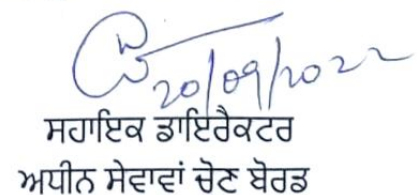 20/09/2022
ਸਹਾਇਕ ਡਾਇਰੈਕਟਰ
ਅਧੀਨ ਸੇਵਾਵਾਂ ਚੋਣ ਬੋਰਡ